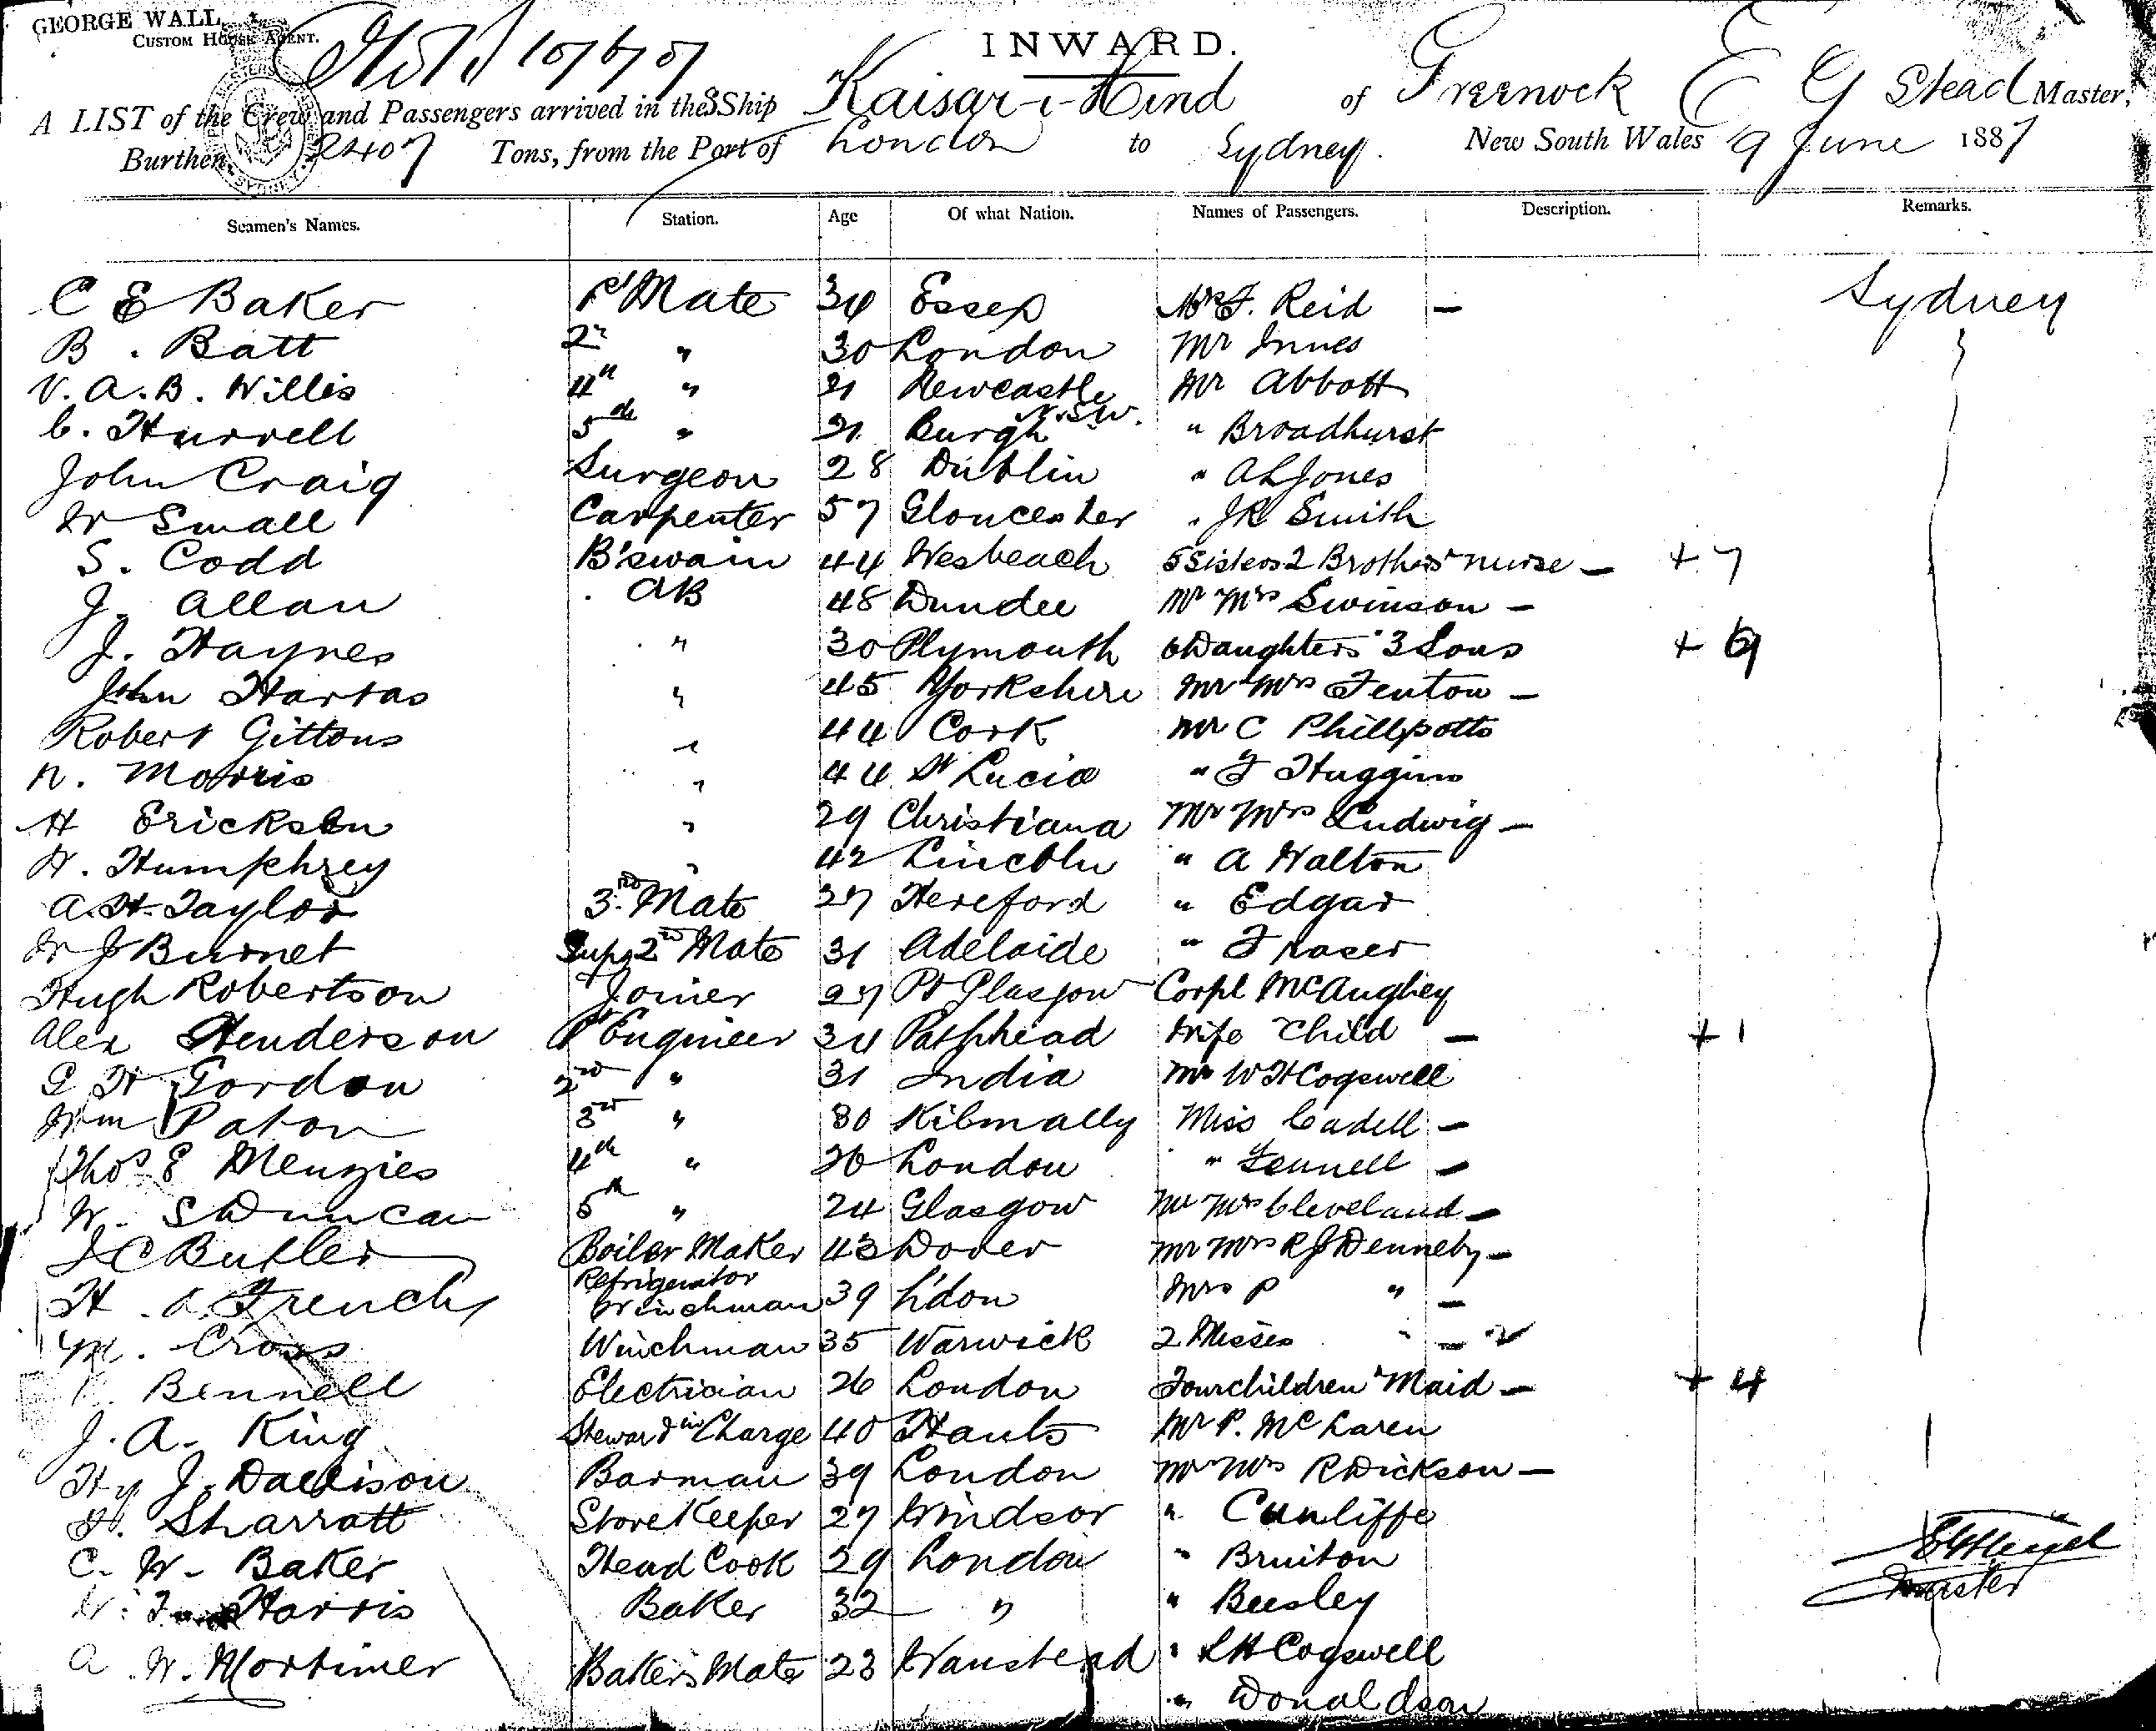 GEORGE WALL,
CUSTOM HOUSE AGENT.
INWARD.
A LIST of the Crew and Passengers arrived in the SShip Kaisar-i-Hind of Greenock E G Stead Master,
Burthen, 2407 Tons, from the Port of London to Sydney. New South Wales 9 June 1887
Seamen's Names. Station. Age Of what Nation. Names of Passengers. Description. Remarks.
C E Baker 1st Mate 34 Essex Mr F. Reid — Sydney
B. Batt 2nd " 30 London Mr Innes
V. A. B. Willis 4th " 21 Newcastle N.S.W. Mr Abbott
C. Hurrell 5th " 21 Burgh " Broadhurst
John Craig Surgeon 28 Dublin " A L Jones
W Small Carpenter 57 Gloucester " JR Smith
S. Codd B'swain 44 Wesbeach 5 Sisters 2 Brothers nurse — + 7
J. Allan AB 48 Dundee Mr Mrs Swinson —
J. Haynes " 30 Plymouth 6 Daughters 3 Sons + 9
John Hartas " 45 Yorkshire Mr Mrs Fenton —
Robert Gittons " 44 Cork Mr C Phillpotts
N. Morris " 44 St Lucia " F Huggins
H Erickson " 29 Christiana Mr Mrs Ludwig —
W. Humphrey " 42 Lincoln " A Walton
A. H. Taylor 3rd Mate 27 Hereford " Edgar
W J Burnet Sup 2nd Mate 31 Adelaide " Fraser
Hugh Robertson Joiner 27 Pt Glasgow Corpl McAughey
Alex Henderson 1st Engineer 34 Pathhead Wife Child — + 1
G H Gordon 2nd " 31 India Mr W H Cogswell
Wm Paton 3rd " 30 Kilmally Miss Cadell —
Thos E Menzies 4th " 26 London " Fennell —
W. S Duncan 5th " 24 Glasgow Mr Mrs Cleveland —
J C Butler Boiler Maker 43 Dover Mr Mrs R J Denneby —
H. A. French Refrigerator Winchman 39 L'don Mrs P " —
M. Cross Winchman 35 Warwick 2 Misses " —
Bennell Electrician 26 London Four children Maid — + 4
J. A. King Steward in Charge 40 Hants Mr P. McLaren
Hy J. Dallison Barman 39 London Mr Mrs R Dickson —
H. Sharratt Store Keeper 27 Windsor " Cunliffe
C. W. Baker Head Cook 29 London " Bruiton
W. Harris Baker 32 " " Beesley
A. W. Mortimer Baker's Mate 23 Wanstead " L H Cogswell
" Donaldson
Master